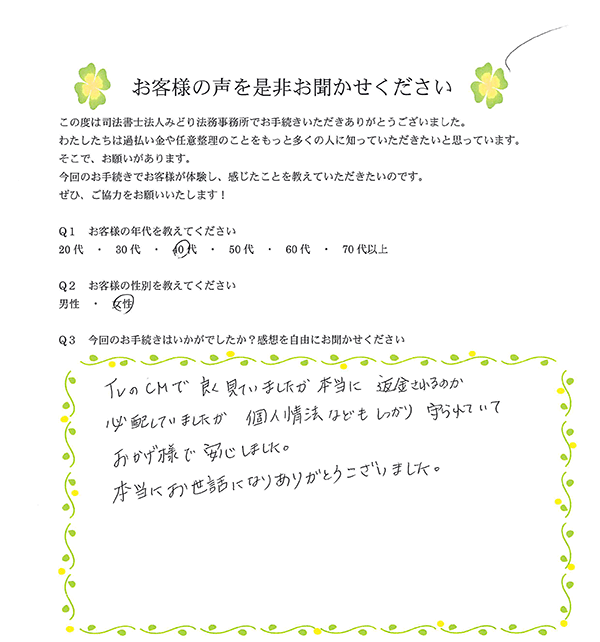 お客様の声を是非お聞かせください
この度は司法書士法人みどり法務事務所でお手続きいただきありがとうございました。
わたしたちは過払い金や任意整理のことをもっと多くの人に知っていただきたいと思っています。
そこで、お願いがあります。
今回のお手続きでお客様が体験し、感じたことを教えていただきたいのです。
ぜひ、ご協力をお願いいたします！
Q１　お客様の年代を教えてください
20代　・　30代　・　40代　・　50代　・　60代　・　70代以上
Q２　お客様の性別を教えてください
男性　・　女性
Q３　今回のお手続きはいかがでしたか？感想を自由にお聞かせください
TVのCMで 良く見ていましたが 本当に 返金されるのか
心配していましたが 個人情法なども しっかり 守られていて
おかげ様で 安心しました。
本当にお世話になりありがとうございました。